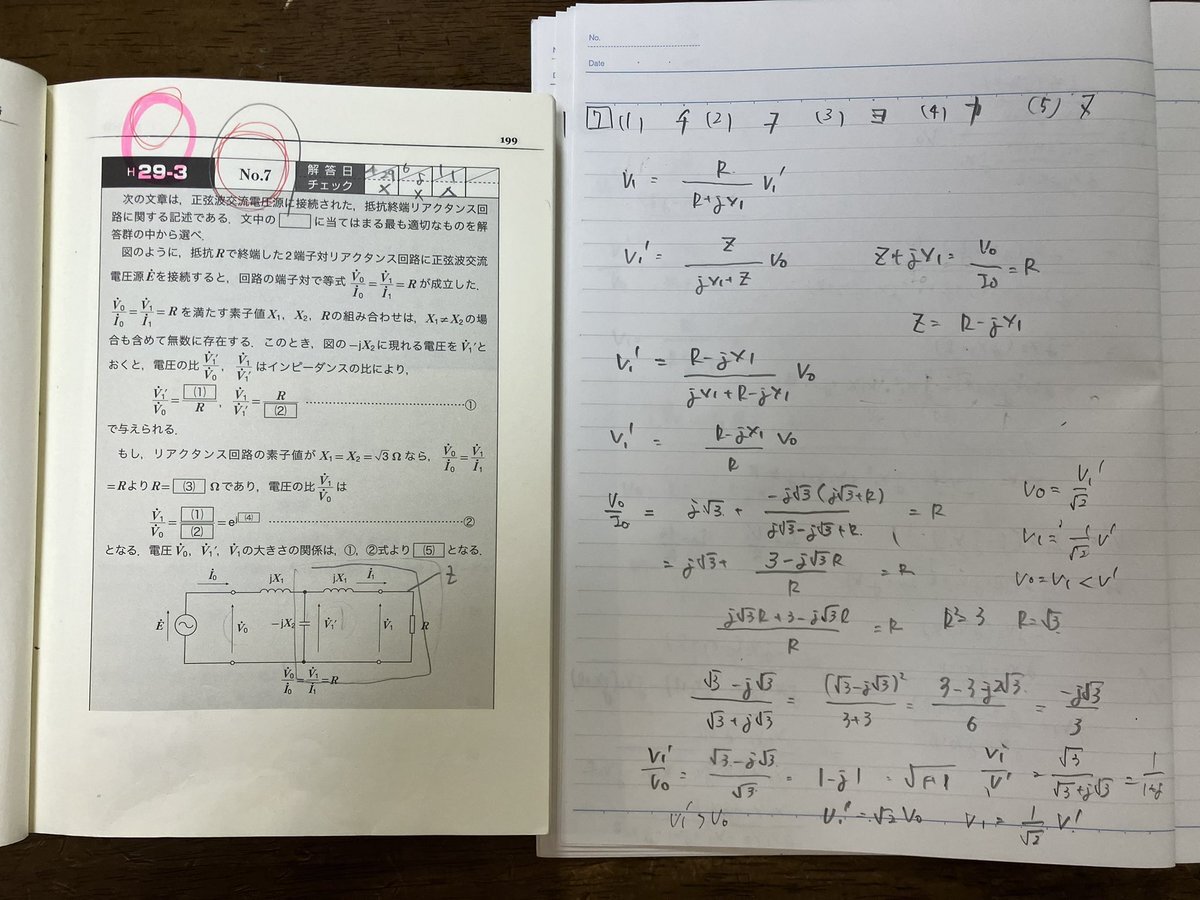 199
H29-3 No.7 解答日 チェック
次の文章は，正弦波交流電圧源に接続された，抵抗終端リアクタンス回
路に関する記述である．文中の□に当てはまる最も適切なものを解
答群の中から選べ．
図のように，抵抗Rで終端した2端子対リアクタンス回路に正弦波交流
電圧源Ėを接続すると，回路の端子対で等式 V̇₀/İ₀ = V̇₁/İ₁ = R が成立した．
V̇₀/İ₀ = V̇₁/İ₁ = R を満たす素子値X₁，X₂，Rの組み合わせは，X₁≠X₂の場
合も含めて無数に存在する．このとき，図の−jX₂に現れる電圧をV̇₁′と
おくと，電圧の比 V̇₁′/V̇₀，V̇₁/V̇₁′ はインピーダンスの比により，
V̇₁′/V̇₀ = (1)/R，V̇₁/V̇₁′ = R/(2) ……①
で与えられる．
もし，リアクタンス回路の素子値が X₁=X₂=√3 Ω なら，V̇₀/İ₀ = V̇₁/İ₁
=RよりR= (3) Ωであり，電圧の比 V̇₁/V̇₀ は
V̇₁/V̇₀ = (1)/(2) = e^j(4) ……②
となる．電圧V̇₀，V̇₁′，V̇₁の大きさの関係は，①，②式より (5) となる．
İ₀ jX₁ jX₁ İ₁ Z
Ė V̇₀ −jX₂ V̇₁′ V̇₁ R
V̇₀/İ₀ = V̇₁/İ₁ = R
No.
Date
7 (1) チ (2) フ (3) ヨ (4) (5)
V₁ = R/(R+jX₁) V₁′
V₁′ = Z/(jX₁+Z) V₀ Z+jX₁ = V₀/I₀ = R
Z = R−jX₁
V₁′ = (R−jX₁)/(jX₁+R−jX₁) V₀
V₁′ = (R−jX₁)/R V₀
V₀/I₀ = j√3 + −j√3(j√3+R)/(j√3−j√3+R) = R V₀ = V₁′/√2
= j√3 + (3−j√3R)/R = R V₁ = 1/√2 V′
(j√3R+3−j√3R)/R = R R²=3 R=√3 V₀=V₁<V′
(√3−j√3)/(√3+j√3) = (√3−j√3)²/(3+3) = (3−3−j2√3)/6 = −j√3/3
V₁′/V₀ = (√3−j√3)/√3 = 1−j1 = √(1+1) V₁/V₁′ = √3/(√3+j√3) = 1/(1+j)
V₁′>V₀ V₁′=√2V₀ V₁ = 1/√2 V′